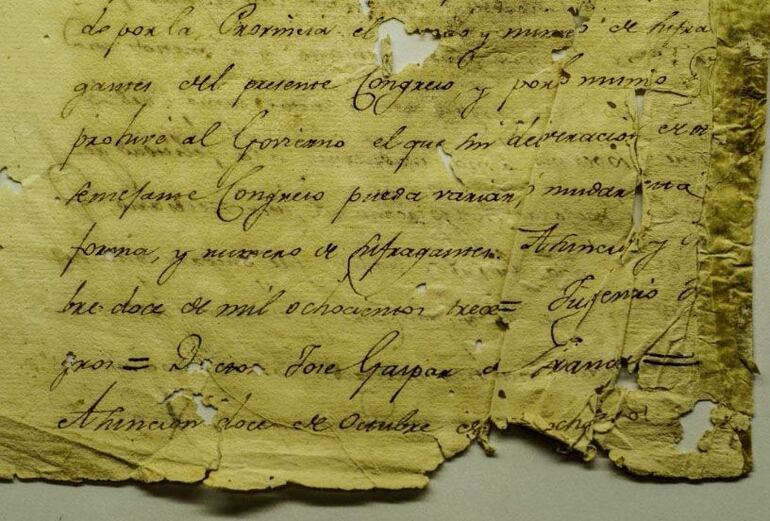 do por la Provincia el modo y numero de sufra
gantes del presente Congreso y por lo mismo
prohive al Govierno el que sin deliberacion de
semejante Congreso pueda variar, ni mudar esta
forma, y numero de sufragantes. Asuncion y
bre doce de mil ochocientos trece= Fulgencio
gros= Doctor Jose Gaspar de Franc
Asuncion doce de Octubre de ochocient